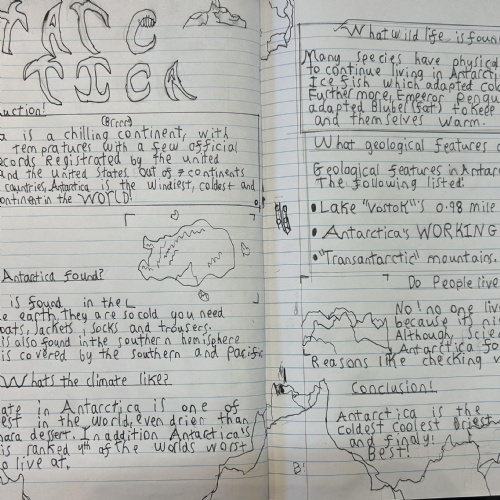 TATC
TICA
uction!
(Brrrr)
a is a chilling continent, with
tempratures with a few official
ecords Registrated by the united
and the united States. out of 7 continents
countries, Antartica is the windiest, coldest and
continent in the WORLD!
Antactica found?
is found in the
e earth, they are so cold you need
oats, Jackets, socks and trousers.
is also found in the southern hemisphere
is covered by the southern and Pacific
Whats the climate like?
ate in Antarctica is one of
est in the world, even drier than
hara dessert. In addition Antarctica's
is ranked 4th of the worlds worst
o live at.
What wild life is foun
Many species have physical
to continue living in Antarcti
Ice fish which adapted cold
Further more, Emperor Pengui
adapted Blubel (fat) to keep
and themselves warm.
What geological features a
Geological features in Antarc
The following listed:
• Lake "Vostok"'s 0.98 mile
• Antarctica's WORKING
• "Transantarctic" mountains.
Do People live
No! no one live
because it's ni
Although, Scie
Antarctica fo
Reasons like checking v
Conclusion!
Antarctica is the
coldest coolest Driest
and finaly!
Best!
B!